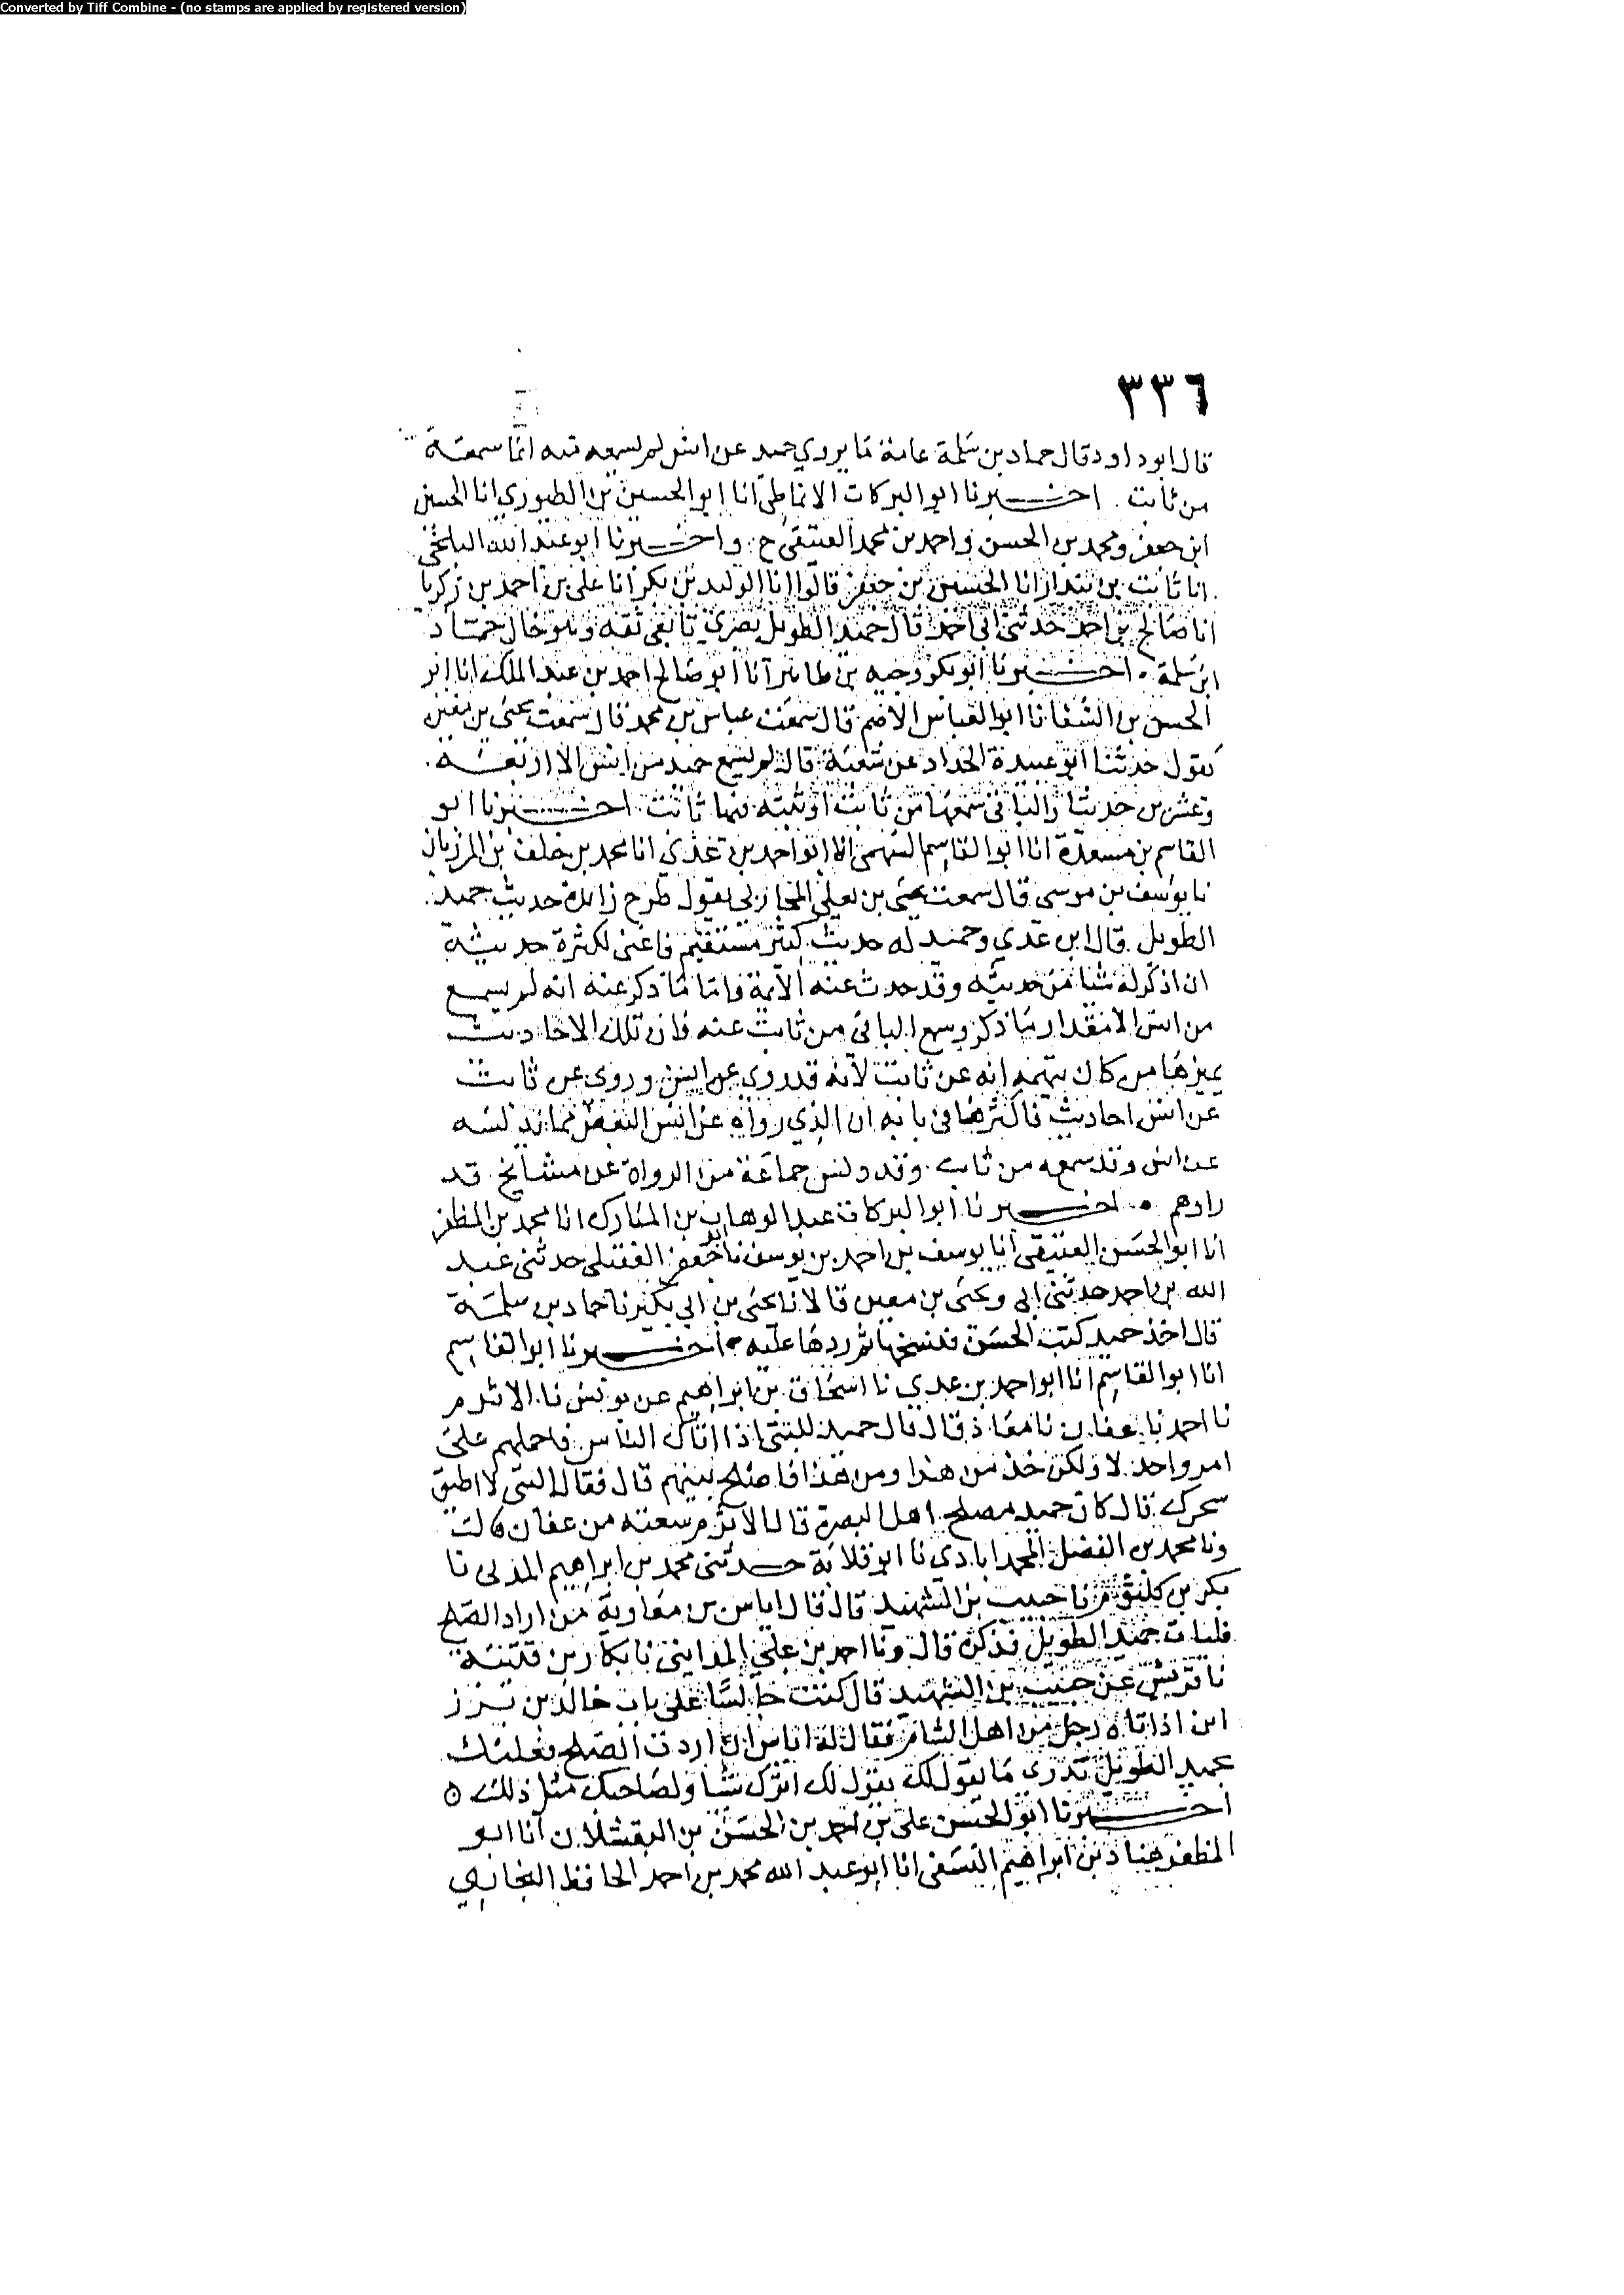 Converted by Tiff Combine - (no stamps are applied by registered version)
٣٣٦
قال ابو داود قال حماد بن سلمة عامة ما يروي حميد عن انس لم يسمعه منه انما سمعه
من ثابت . اخبرنا ابو البركات الانماطي انا ابو الحسين بن الطيوري انا الحسين
ابن جعفر ومحمد بن الحسن واحمد بن محمد العتيقي ح . واخبرنا ابو عبد الله البلخي
انا ثابت بن بندار انا الحسين بن جعفر قالوا انا الوليد بن بكر انا علي بن احمد بن زكريا
انا صالح بن احمد حدثني ابي احمد قال حميد الطويل بصري تابعي ثقة وهو خال حماد
ابن سلمة . اخبرنا ابو بكر وجيه بن طاهر انا ابو صالح احمد بن عبد الملك انا ابو
الحسن بن السقا نا ابو العباس الاصم قال سمعت عباس بن محمد قال سمعت يحيى بن معين
يقول حدثنا ابو عبيدة الحداد عن شعبة قال لم يسمع حميد من انس الا اربعة .
وعشرين حديثا والباقي سمعها من ثابت او ثبته فيها ثابت . اخبرنا ابو
القاسم بن مسعدة انا ابو القاسم السهمي انا ابو احمد بن عدي انا محمد بن خلف بن المرزبان
نا يوسف بن موسى قال سمعت يحيى بن يعلى المحاربي يقول طرح زائدة حديث حميد .
الطويل . قال ابن عدي وحميد له حديث كثير مستقيم فاغنى لكثرة حديثه
ان اذكر له شيا من حديثه وقد حدث عنه الائمة واما ما ذكر عنه انه لم يسمع
من انس الا مقدار ما ذكر وسمع الباقي من ثابت عنه فان تلك الاحاديث
يميزها من كان يتهمه انه عن ثابت لانه قد روى عن انس وروى عن ثابت
عن انس احاديث فاكثر ما في بابه ان الذي رواه عن انس البعض مما يدلسه
عن انس وقد سمعه من ثابت . وقد دلس جماعة من الرواة عن مشايخ . قد
راوهم . اخبرنا ابو البركات عبد الوهاب بن المبارك انا محمد بن المظفر
انا ابو الحسن العتيقي انا يوسف بن احمد بن يوسف نا ابو جعفر العقيلي حدثني عبد
الله بن احمد حدثني ابي ويحيى بن معين قالا نا يحيى بن ابي بكير نا حماد بن سلمة
قال اخذ حميد كتب الحسن فنسخها ثم ردها عليه . اخبرنا ابو القاسم
انا ابو القاسم انا ابو احمد بن عدي نا اسحاق بن ابراهيم عن يونس نا الاثرم
نا احمد نا عفان نا معاذ قال قال حميد للبتي اذا اتاك الناس فاحملهم على
امر واحد لا ولكن خذ من هذا ومن هذا فاصلح بينهم قال فقال البتي لا اطيق
سحرك . قال كان حميد مصلح اهل البصرة قال الاثرم سمعته من عفان قال
ونا محمد بن الفضل المحمداباذي نا ابو قلابة حدثني محمد بن ابراهيم المدني نا
بكر بن كلثوم نا حبيب بن الشهيد قال قال اياس بن معاوية من اراد الصلح
فليات حميد الطويل فذكره قال ونا احمد بن علي المدايني نا بكار بن قتيبة
نا قريش عن حبيب بن الشهيد قال كنت جالسا على باب خالد بن برز
ابن اذ اتاه رجل من اهل الشام فقال له اياس ان اردت الصلح فعليك
بحميد الطويل تدري ما يقول لك يقول لك اترك شيا ولصاحبك مثل ذلك ه
اخبرنا ابو الحسن علي بن احمد بن الحسن بن البقشلان انا ابو
المظفر هناد بن ابراهيم النسفي انا ابو عبد الله محمد بن احمد الحافظ البخاري